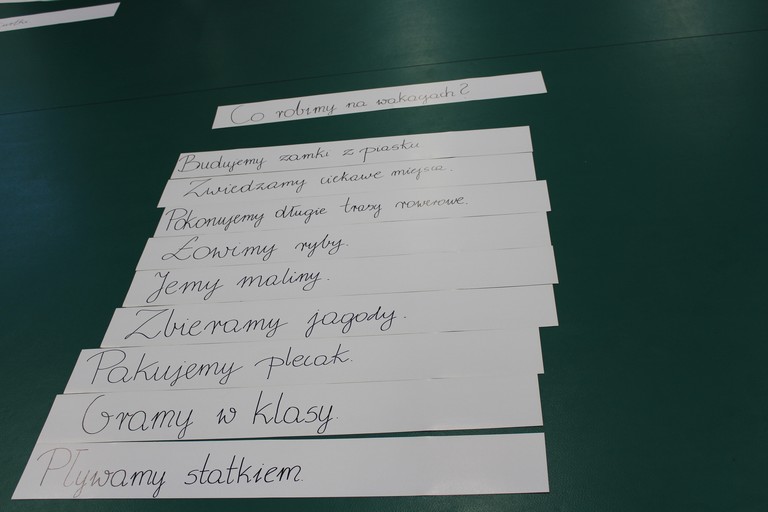 Co robimy na wakacjach?
Budujemy zamki z piasku
Zwiedzamy ciekawe miejsca.
Pokonujemy długie trasy rowerowe.
Łowimy ryby.
Jemy maliny.
Zbieramy jagody.
Pakujemy plecak.
Gramy w klasy.
Pływamy statkiem.